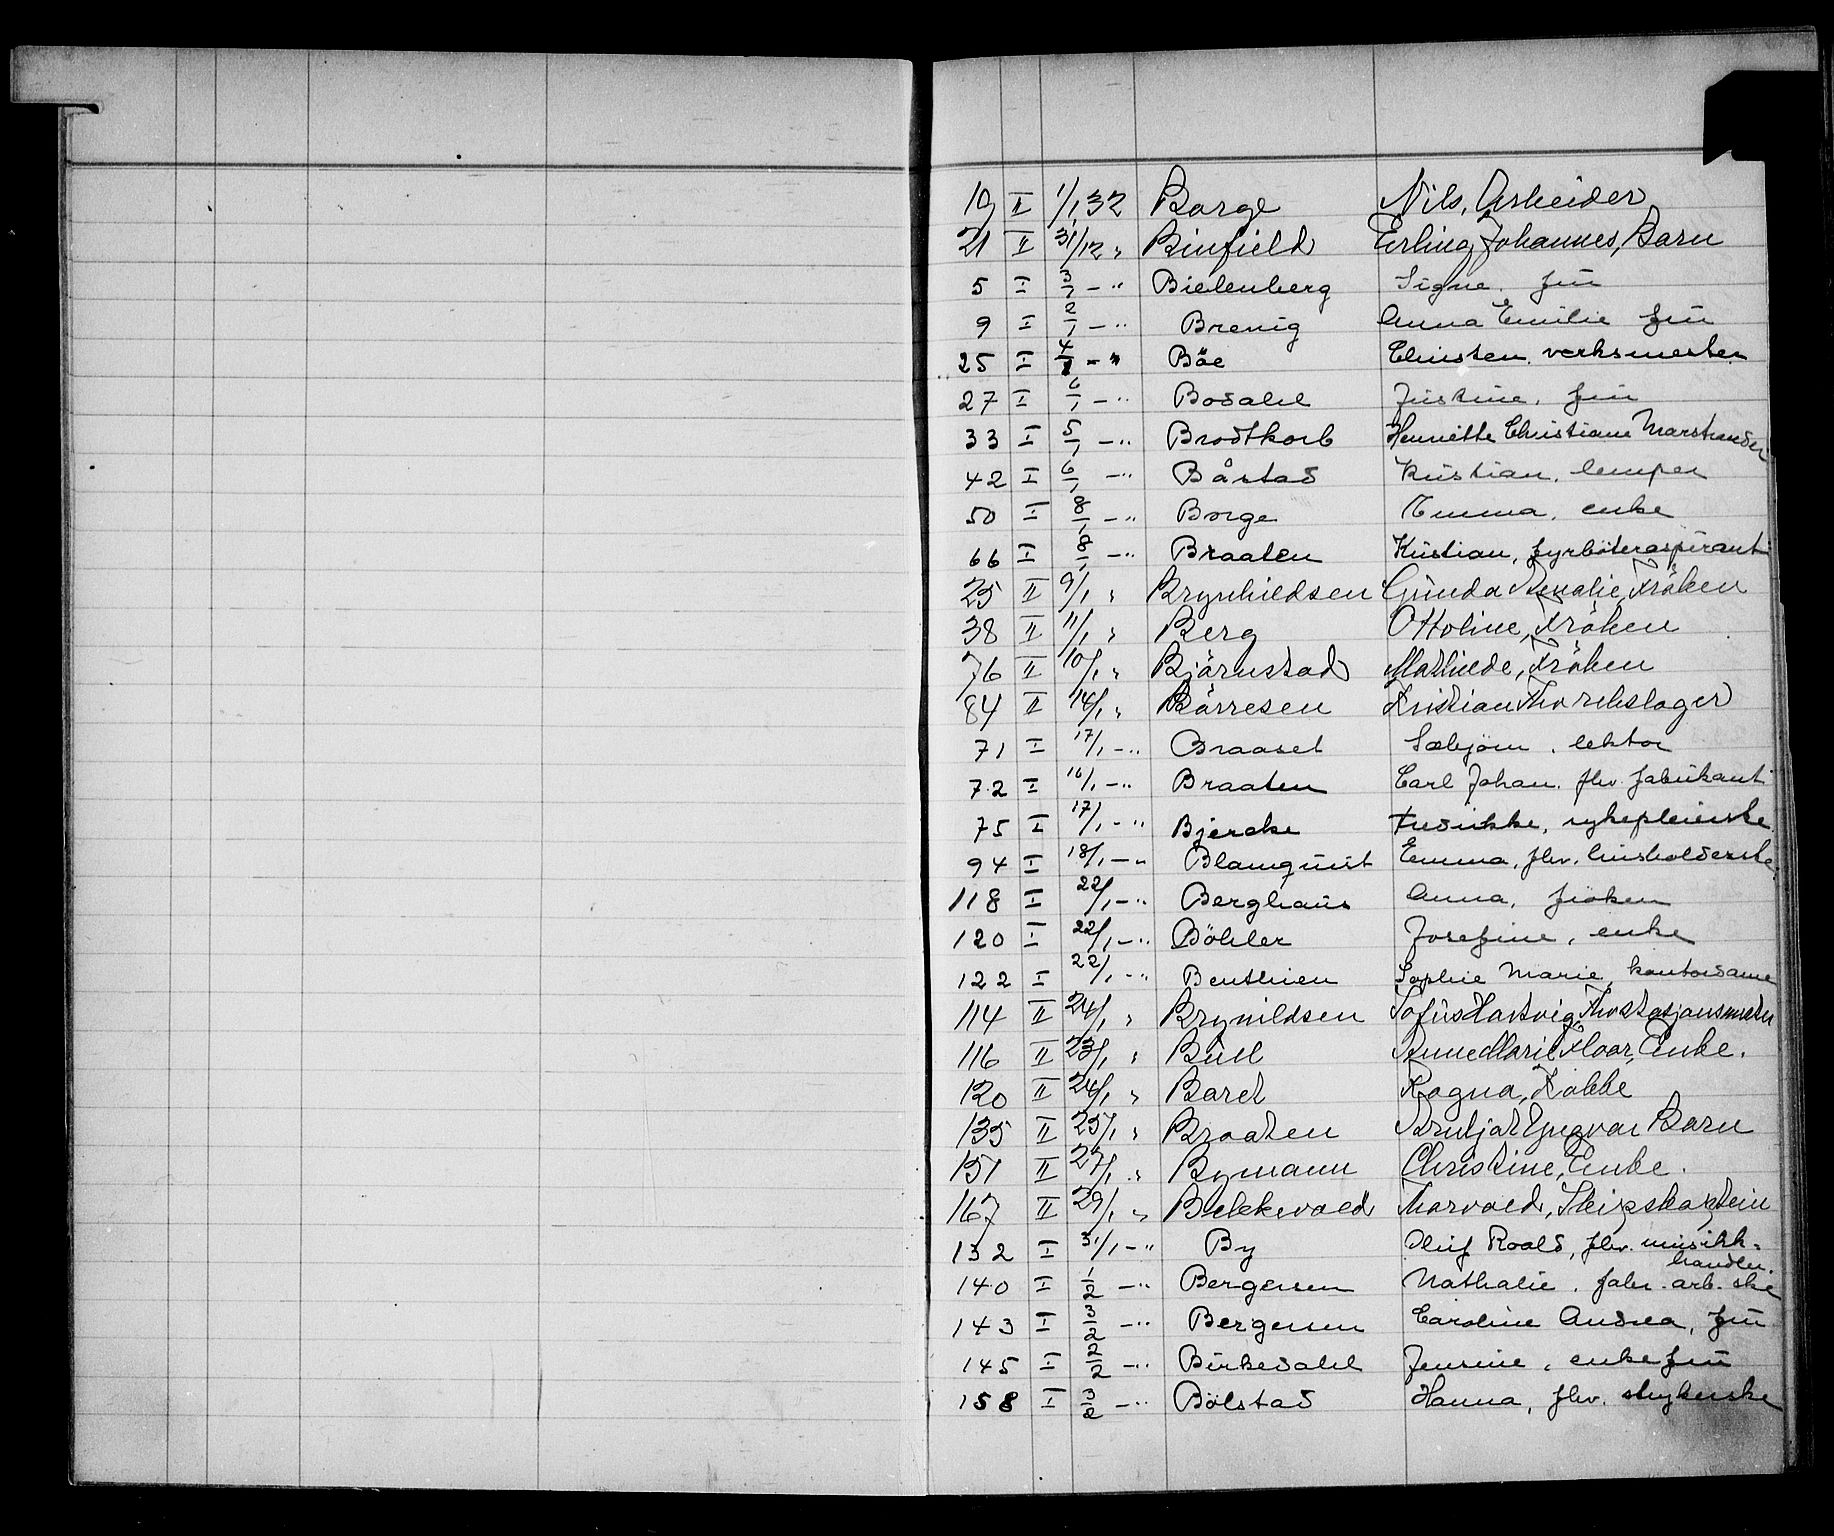 19 II 1/1 32 Borge Nils, Arbeider
21 II 31/12 " Binfield Erling Johannes, Barn
5 I 3/1 - " Bielenberg Signe, frü
9 I 2/1 - " Brenig Anna Emilie frü
25 I 4/1 - " Böe Christen, verksmester
27 I 6/1 - " Bosdahl Justine, frü
33 I 5/1 - " Brodtkorb Henriette Christiane Marstrander
42 I 6/1 - " Båstad Kristian, lemper
50 I 8/1 - " Borge Emma, enke
66 I 8/1 - " Braaten Kristian, fyrböteraspirant
25 II 9/1 " Brynhildsen Gunda Amalie, Fröken
38 II 11/1 " Berg Ottoline, Fröken
76 II 10/1 " Björnstad Mathilde, Fröken
84 II 14/1 " Börresen Kristian Fhv rebslager
71 I 17/1 - " Braaset Sæbjörn, lektor
72 I 16/1 - " Braaten Carl Johan, fhv. fabrikant
75 I 17/1 - " Bjercke Fredrikke, sykepleierske
94 I 18/1 - " Blomquist Emma, fhv. husholderske
118 I 22/1 - " Berghaus Anna, fröken
120 I 22/1 - " Böhler Josefine, enke
122 I 22/1 - " Benthien Sophie Marie, kontordame
114 II 24/1 " Brynildsen Sofus Hartvig, Fhv Stasjonsmester
116 II 23/1 " Bull Anne Marie Floor, Enke.
120 II 24/1 " Bard Ragna, Kokke
135 II 25/1 " Braaten Arnljot Yngvar Barn
151 II 27/1 " Bymann Christine, Enke.
167 II 29/1 " Bekkevold Thorvald, Skipskaptein
132 I 31/1 - " By Oluf Roald, fhv. musikk-
handler.
140 I 1/2 - " Bergersen Nathalie, fabr. arb. ske
143 I 3/2 - " Bergersen Caroline Andrea, frü
145 I 2/2 - " Birkedahl Jensine, enkefrü
158 I 3/2 - " Bölstad Hanna, fhv. strykerske